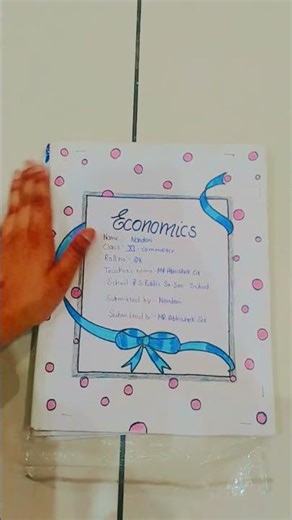 Economics
Name : Nandani
Class : XI - Commerce
Roll no :
Teacher's name : MR Abhishek Sir
School : Sr. Sec. School
Submitted by : Nandani
Submitted to : MR Abhishek Sir